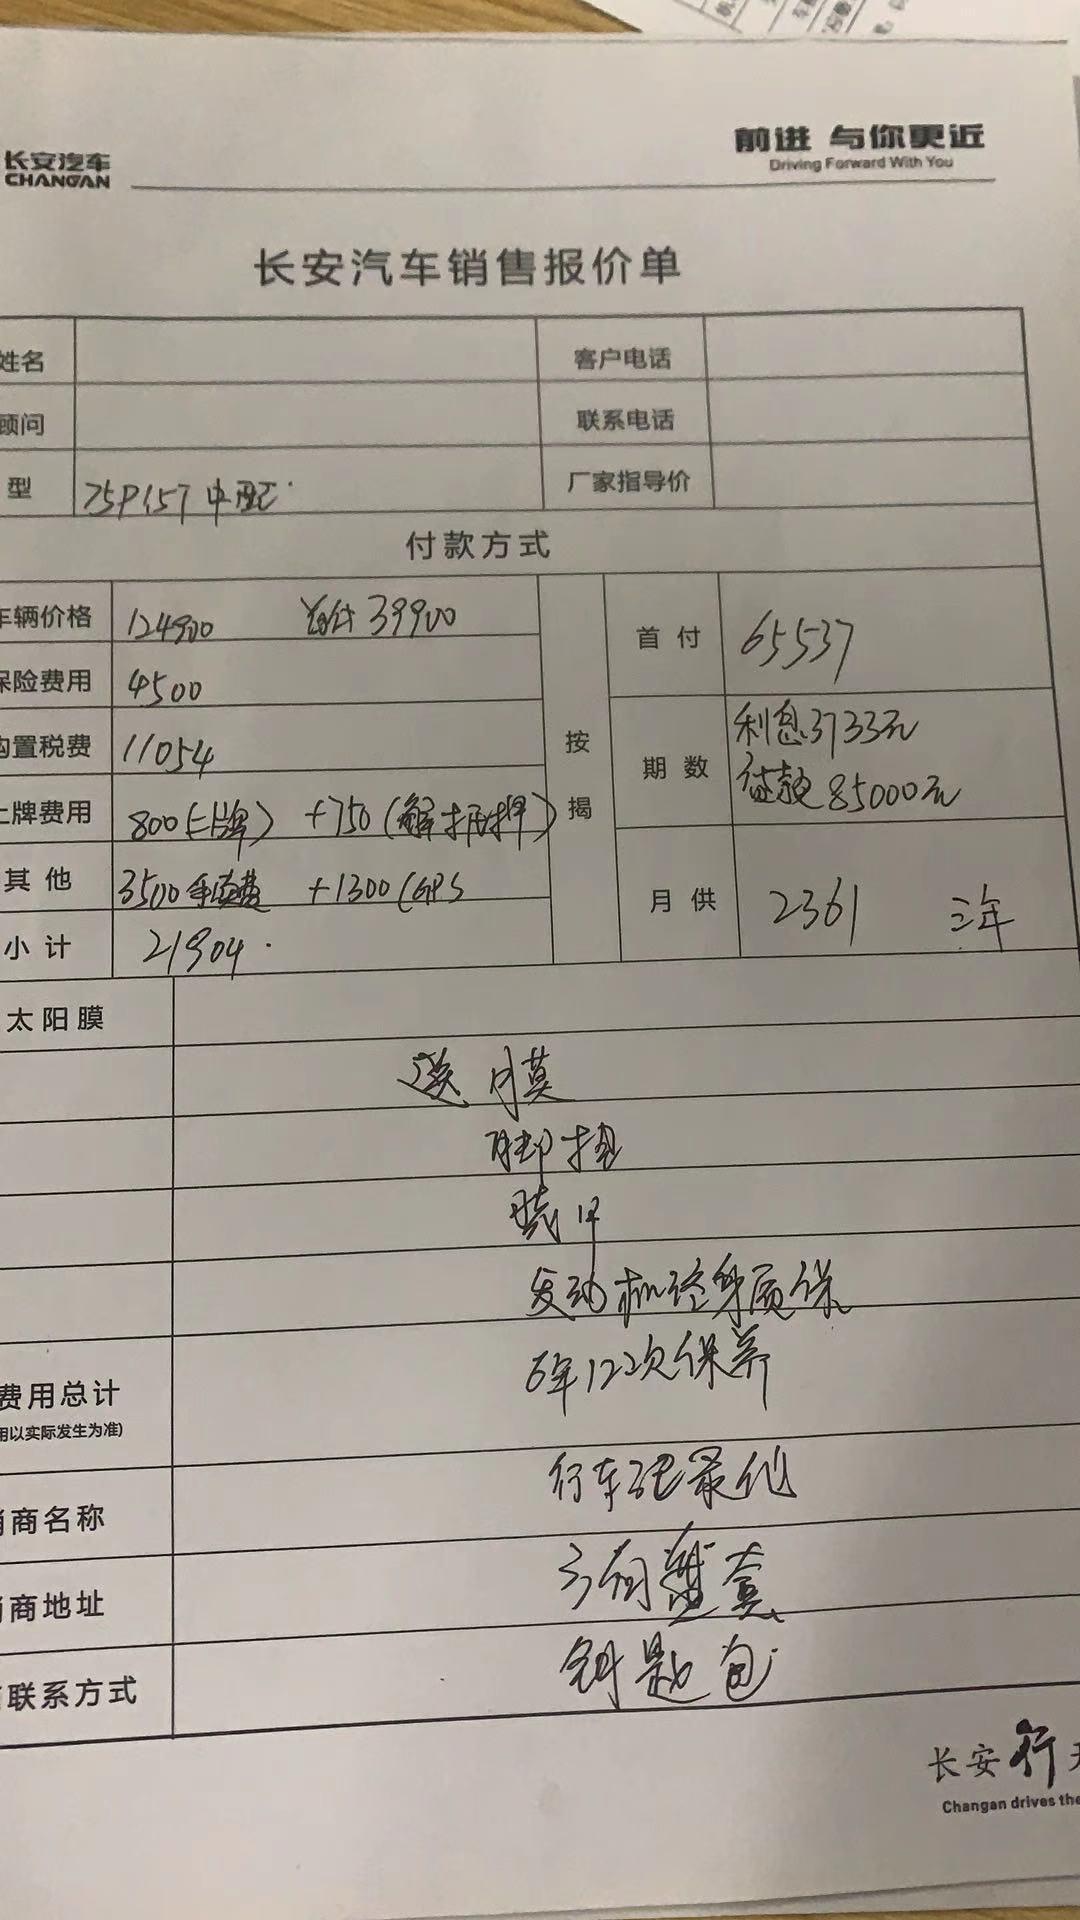 长安汽车
CHANGAN
前进 与你更近
Driving Forward With You
长安汽车销售报价单
姓名 客户电话
顾问 联系电话
型 75P157 中配 厂家指导价
付款方式
车辆价格 124900 首付 39900
保险费用 4500
购置税费 11054
上牌费用 800(上牌) +750(解抵押)
其他 3500手续费 +1300(GPS
小计 21904
按揭
首付 65537
期数 利息3733元
贷款85000元
月供 2361 三年
太阳膜
送 膜
脚垫
发动机终身质保
6年12次保养
费用总计
用以实际发生为准)
行车记录仪
商名称
商地址
钥匙包
联系方式
长安行天
Changan drives the